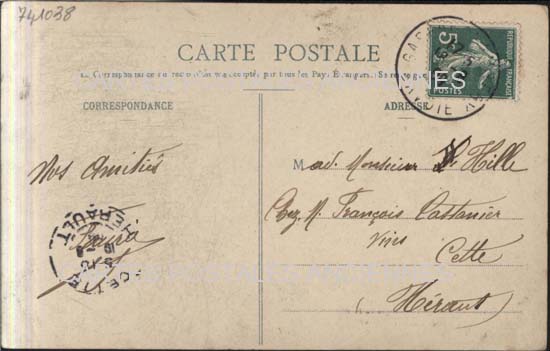 741038
CARTE POSTALE
La Correspondance au recto n'est pas acceptée par tous les Pays Étrangers. Se renseigner
CORRESPONDANCE
ADRESSE
RÉPUBLIQUE FRANÇAISE
5
POSTES
ES
Nos Amitiés
CETTE
HÉRAULT
Mad. Monsieur Hille
Chez M. François Castanier
Vins
Cette
Hérault